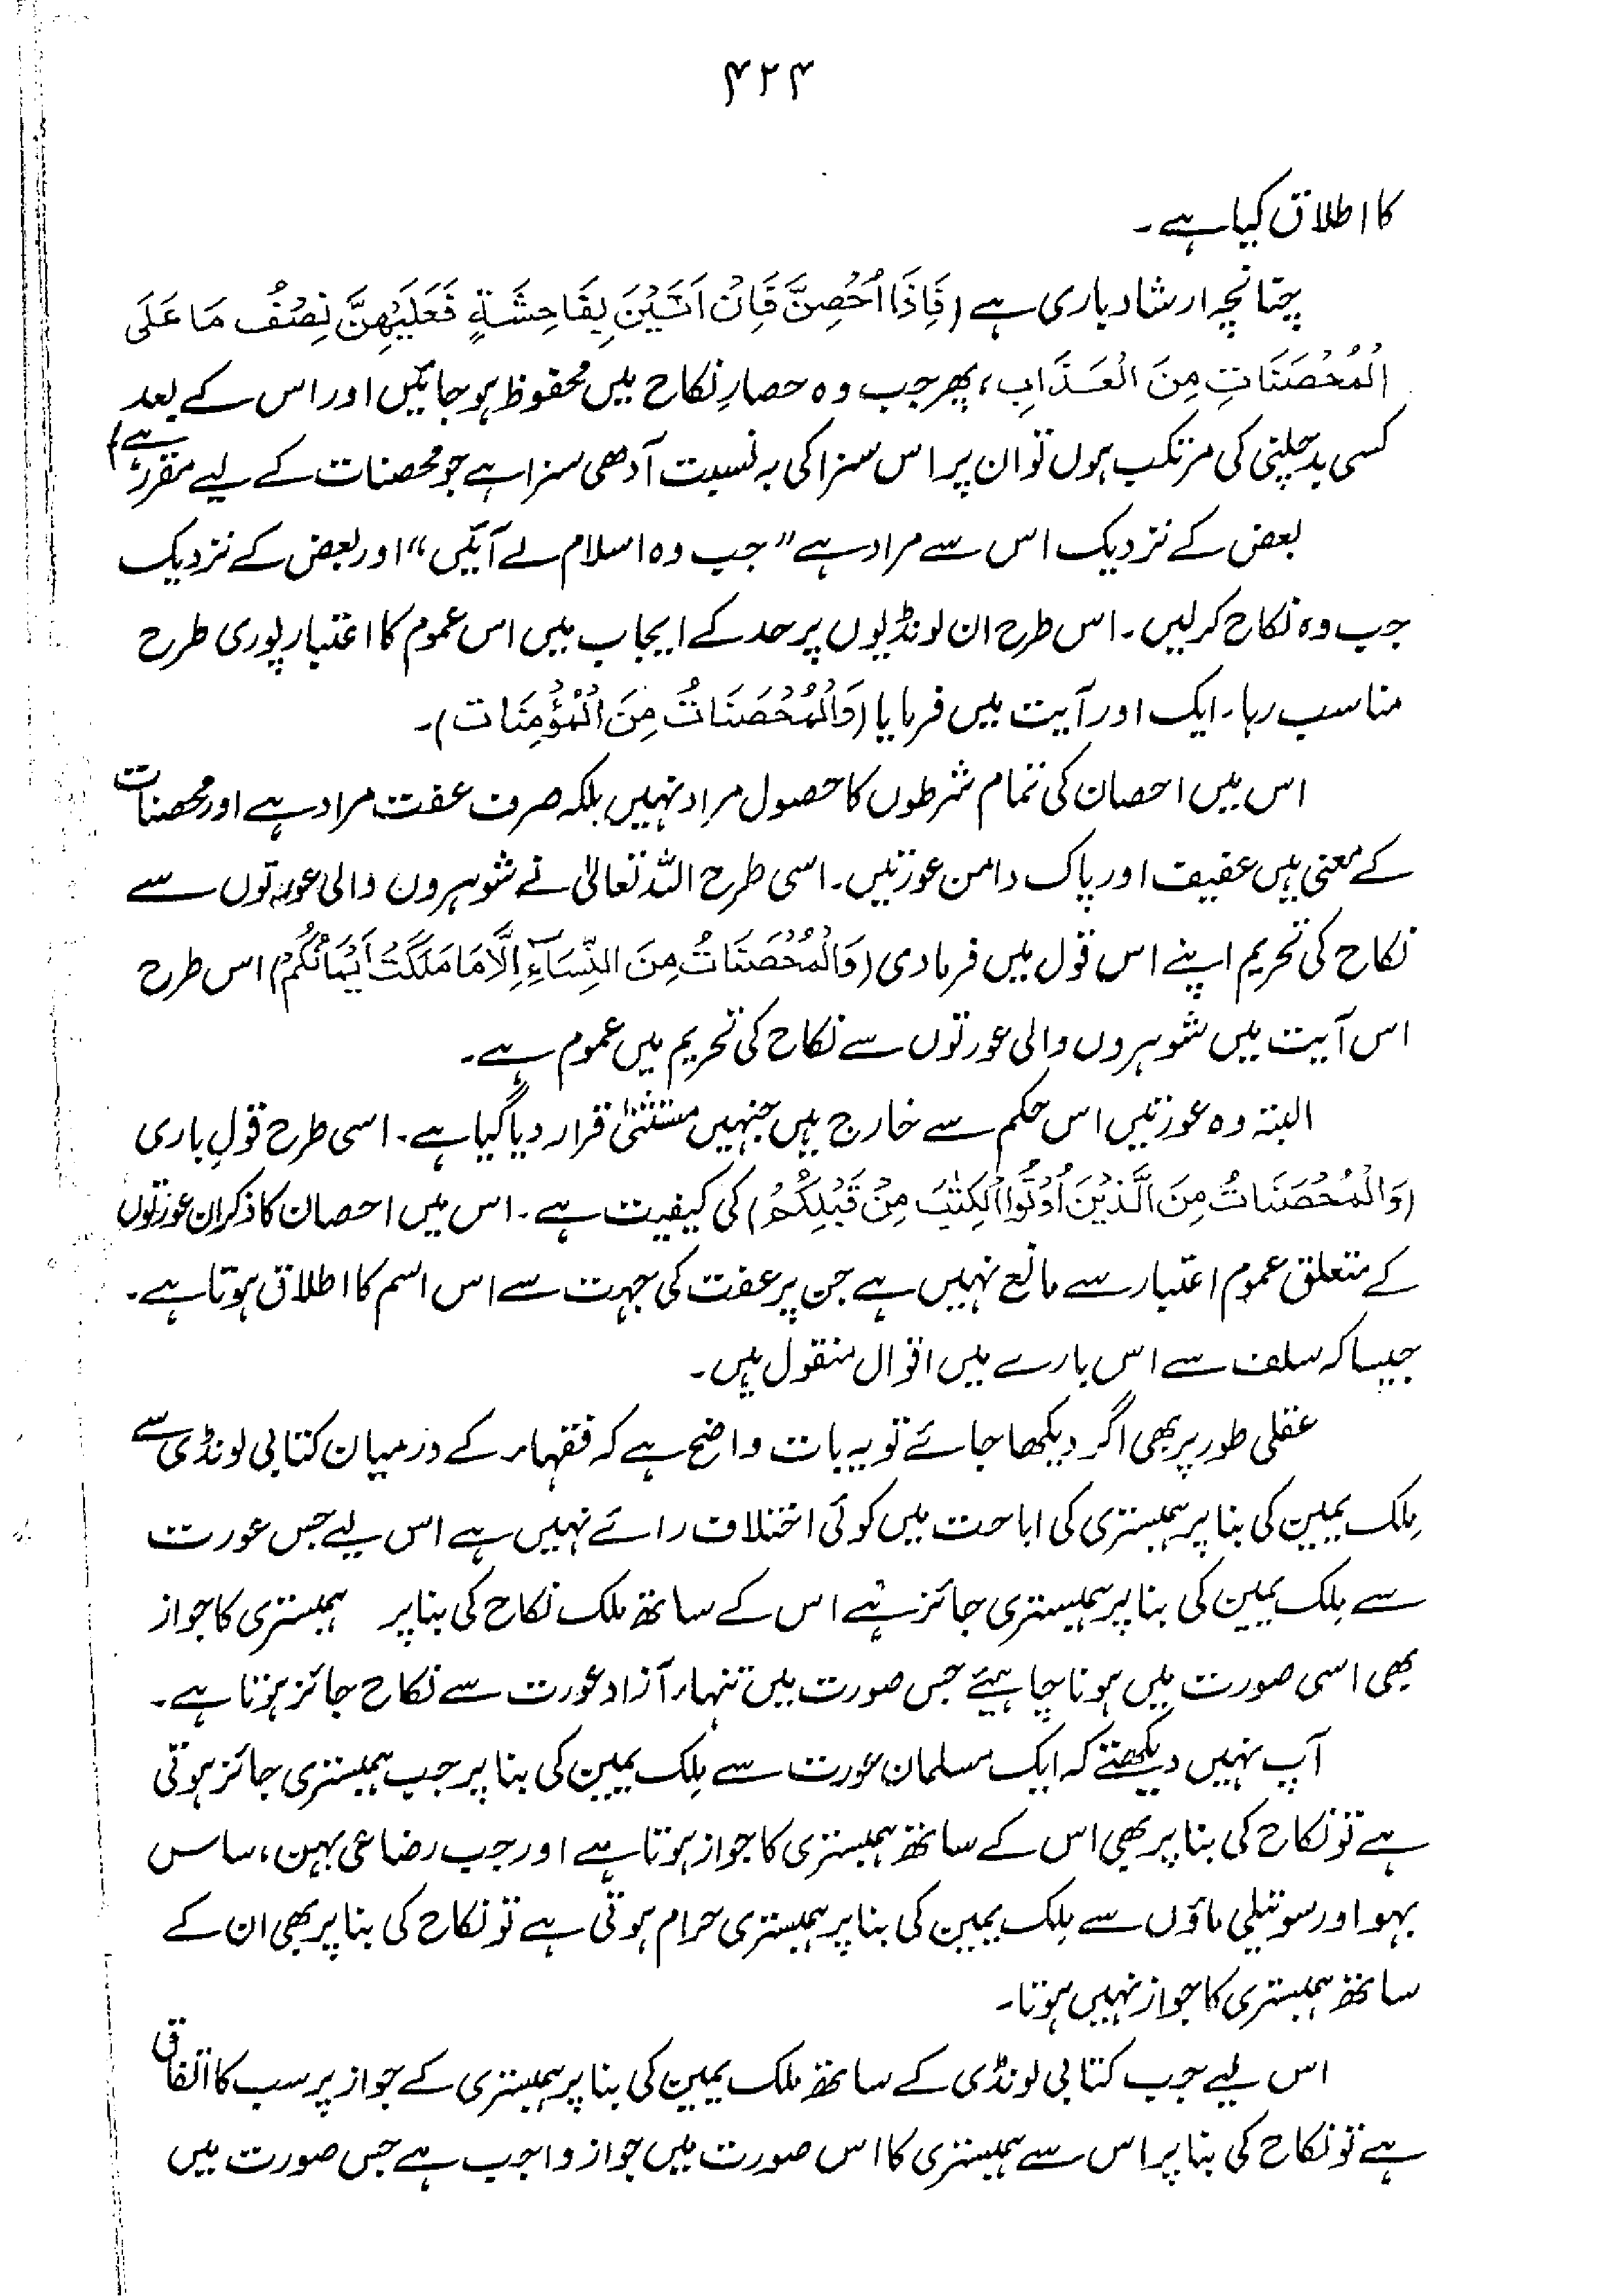 ۴۲۴
کا اطلاق کیا ہے۔
چنانچہ ارشاد باری ہے (فَاِذَا اُحْصِنَّ فَاِنْ اَتَیْنَ بِفَاحِشَةٍ فَعَلَیْهِنَّ نِصْفُ مَا عَلَی
الْمُحْصَنَاتِ مِنَ الْعَذَابِ، پھر جب وہ حصارِ نکاح میں محفوظ ہو جائیں اور اس کے بعد
کسی بدچلنی کی مرتکب ہوں تو ان پر اس سزا کی بہ نسبت آدھی سزا ہے جو محصنات کے لیے مقرر ہے)
بعض کے نزدیک اس سے مراد ہے "جب وہ اسلام لے آئیں" اور بعض کے نزدیک
جب وہ نکاح کر لیں۔ اس طرح ان لونڈیوں پر حد کے ایجاب میں اس عموم کا اعتبار پوری طرح
مناسب رہا۔ ایک اور آیت میں فرمایا (وَالْمُحْصَنَاتُ مِنَ الْمُؤْمِنَات)۔
اس میں احصان کی تمام شرطوں کا حصول مراد نہیں بلکہ صرف عفت مراد ہے اور محصنات
کے معنی ہیں عفیف اور پاک دامن عورتیں۔ اسی طرح اللہ تعالیٰ نے شوہروں والی عورتوں سے
نکاح کی تحریم اپنے اس قول میں فرما دی (وَالْمُحْصَنَاتُ مِنَ النِّسَآءِ اِلَّا مَا مَلَکَتْ اَیْمَانُکُمْ) اس طرح
اس آیت میں شوہروں والی عورتوں سے نکاح کی تحریم میں عموم ہے۔
البتہ وہ عورتیں اس حکم سے خارج ہیں جنہیں مستثنیٰ قرار دیا گیا ہے۔ اسی طرح قولِ باری
(وَالْمُحْصَنَاتُ مِنَ الَّذِیْنَ اُوْتُوا الْکِتٰبَ مِنْ قَبْلِکُمْ) کی کیفیت ہے۔ اس میں احصان کا ذکر ان عورتوں
کے متعلق عموم اعتبار سے مانع نہیں ہے جن پر عفت کی جہت سے اس اسم کا اطلاق ہوتا ہے۔
جیسا کہ سلف سے اس بارے میں اقوال منقول ہیں۔
عقلی طور پر بھی اگر دیکھا جائے تو یہ بات واضح ہے کہ فقہاء کے درمیان کتابی لونڈی سے
مِلک یمین کی بنا پر ہمبستری کی اباحت میں کوئی اختلاف رائے نہیں ہے اس لیے جس عورت
سے مِلک یمین کی بنا پر ہمبستری جائز ہے اس کے ساتھ ملک نکاح کی بنا پر ہمبستری کا جواز
بھی اسی صورت میں ہونا چاہیئے جس صورت میں تنہاء آزاد عورت سے نکاح جائز ہوتا ہے۔
آپ نہیں دیکھتے کہ ایک مسلمان عورت سے مِلک یمین کی بنا پر جب ہمبستری جائز ہوتی
ہے تو نکاح کی بنا پر بھی اس کے ساتھ ہمبستری کا جواز ہوتا ہے اور جب رضاعی بہن، ساس
بہو اور سوتیلی ماؤں سے مِلک یمین کی بنا پر ہمبستری حرام ہوتی ہے تو نکاح کی بنا پر بھی ان کے
ساتھ ہمبستری کا جواز نہیں ہوتا۔
اس لیے جب کتابی لونڈی کے ساتھ ملک یمین کی بنا پر ہمبستری کے جواز پر سب کا اتفاق
ہے تو نکاح کی بنا پر اس سے ہمبستری کا اس صورت میں جواز واجب ہے جس صورت میں